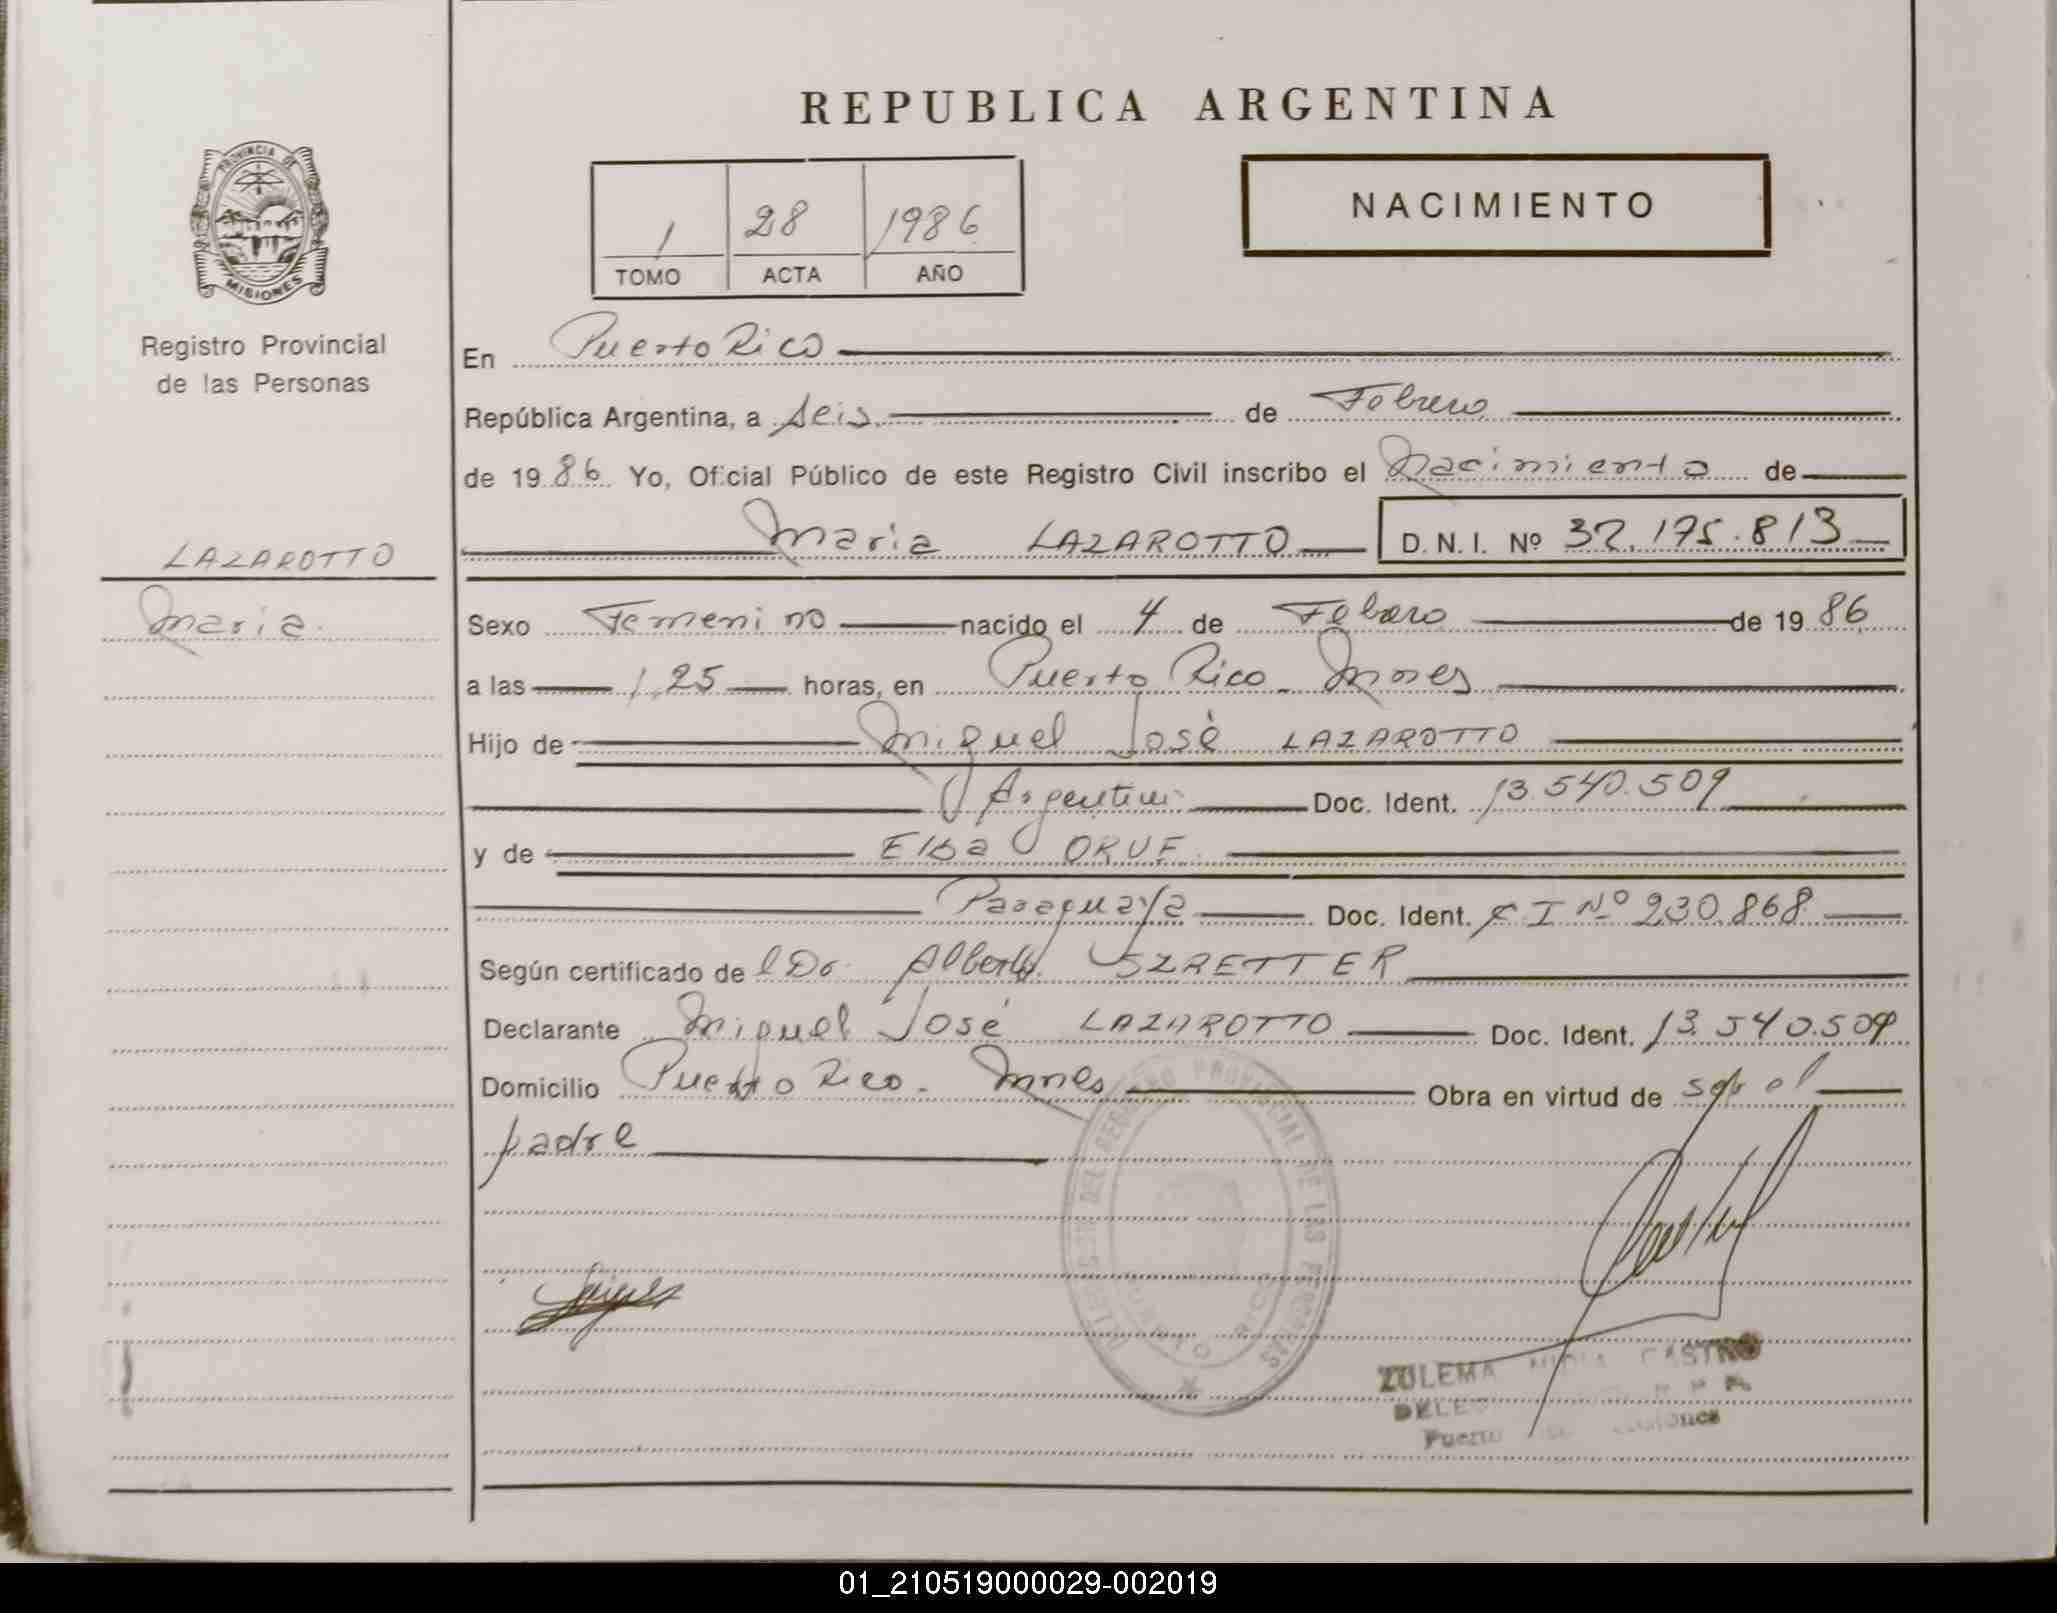 REPUBLICA ARGENTINA
PROVINCIA DE
MISIONES
Registro Provincial
de las Personas
1 28 1986
TOMO ACTA AÑO
NACIMIENTO
En Puerto Rico
República Argentina, a seis de Febrero
de 1986 Yo, Oficial Público de este Registro Civil inscribo el Nacimiento de
Maria LAZAROTTO D. N. I. Nº 32.175.813
LAZAROTTO
Maria.
Sexo Femenino nacido el 4 de Febrero de 1986
a las 1,25 horas, en Puerto Rico - Mnes
Hijo de Miguel José LAZAROTTO
Argentino Doc. Ident. 13.540.509
y de Elba ORUE
Paraguaya Doc. Ident. C I Nº 230.868
Según certificado del Dr. Alberto SZRETTER
Declarante Miguel José LAZAROTTO Doc. Ident. 13.540.509
Domicilio Puerto Rico - Mnes Obra en virtud de ser el
padre
DEL REGISTRO PROVINCIAL DE LAS PERSONAS
PUERTO RICO
ZULEMA CASTRO
Puerto Misiones
01_210519000029-002019